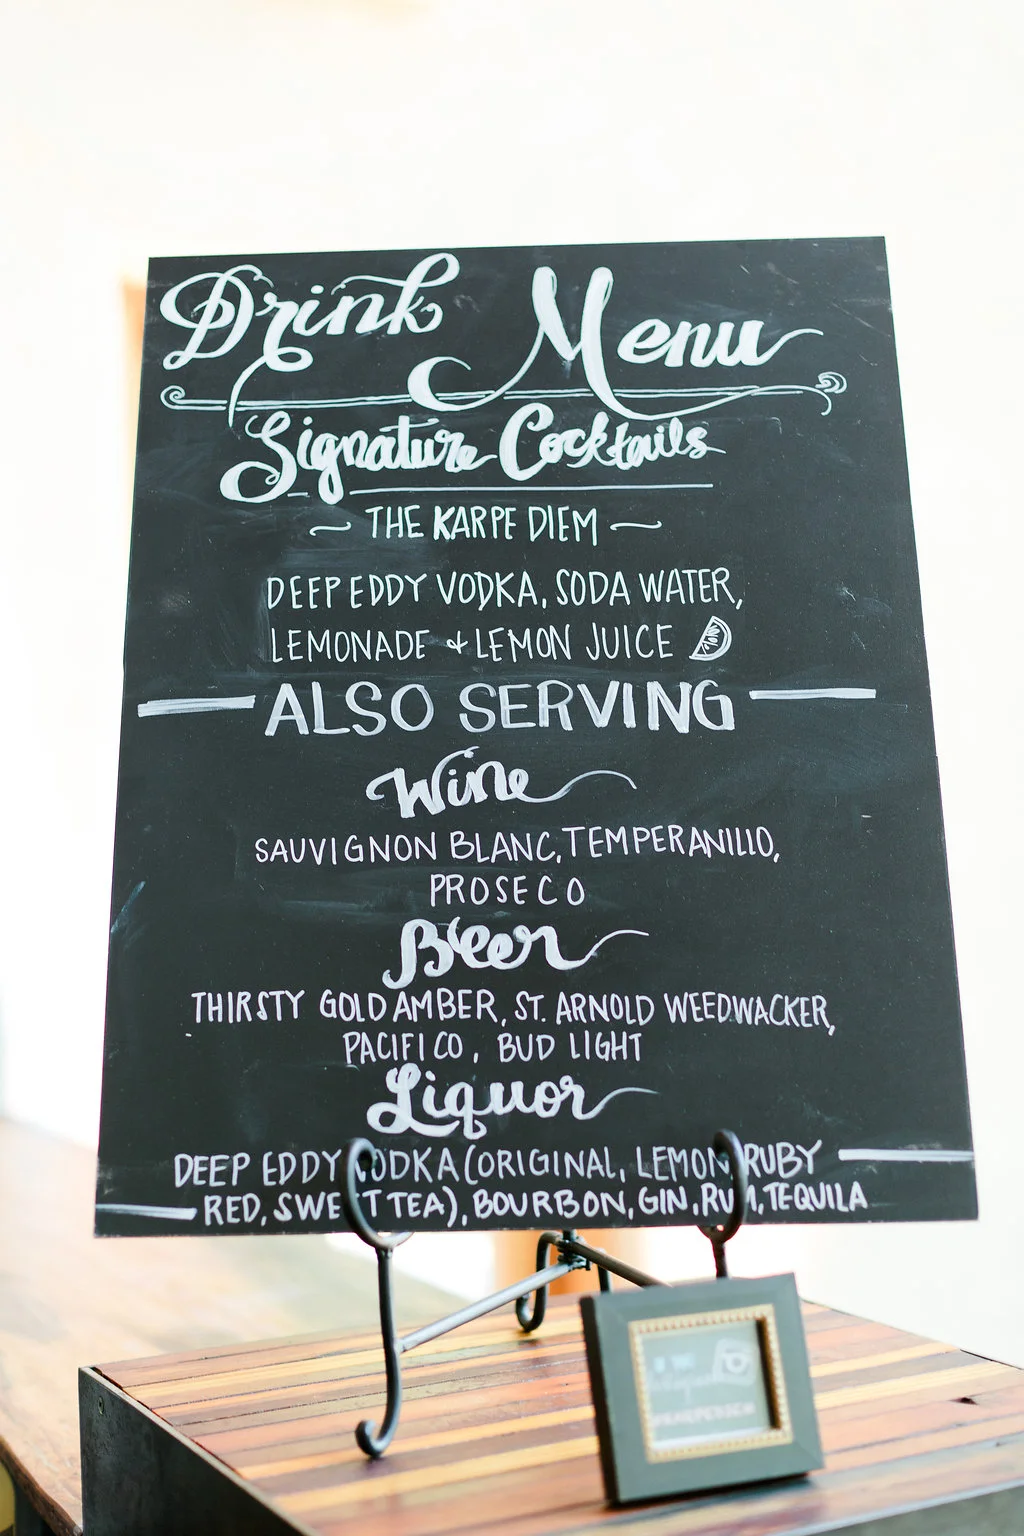 Drink Menu
Signature Cocktails
~ THE KARPE DIEM ~
DEEP EDDY VODKA, SODA WATER,
LEMONADE & LEMON JUICE
ALSO SERVING
Wine
SAUVIGNON BLANC, TEMPERANILLO,
PROSECO
Beer
THIRSTY GOLD AMBER, ST. ARNOLD WEEDWACKER,
PACIFICO, BUD LIGHT
Liquor
DEEP EDDY VODKA (ORIGINAL, LEMON, RUBY
RED, SWEET TEA), BOURBON, GIN, RUM, TEQUILA